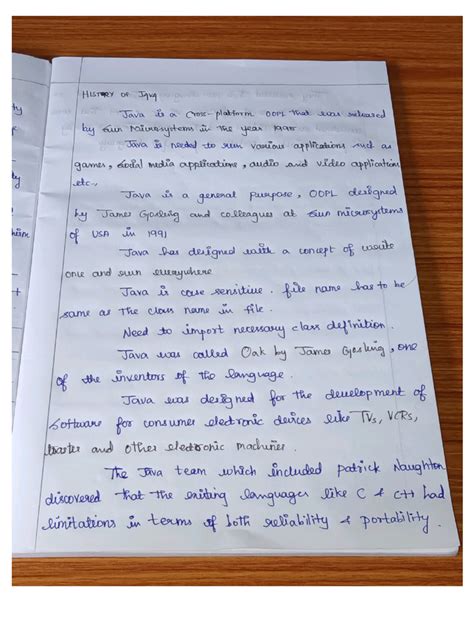 HISTORY OF Java
Java is a cross-platform OOPL that was released
by Sun Microsystems in the year
Java is needed to run various applications such as
games, social media applications, audio and video application
etc.,
Java is a general purpose, OOPL designed
by James Gosling and colleagues at Sun microsystems
of USA in 1991
Java has designed with a concept of write
one and run everywhere
Java is case sensitive. file name has to be
same as the class name in file.
Need to import necessary class definition.
Java was called Oak by James Gosling, one
of the inventors of the language.
Java was designed for the development of
software for consumer electronic devices like TVs, VCRs,
toaster and other electronic machines.
The Java team which included patrick Naughton
discovered that the existing languages like C & C++ had
limitations in terms of both reliability & portability.